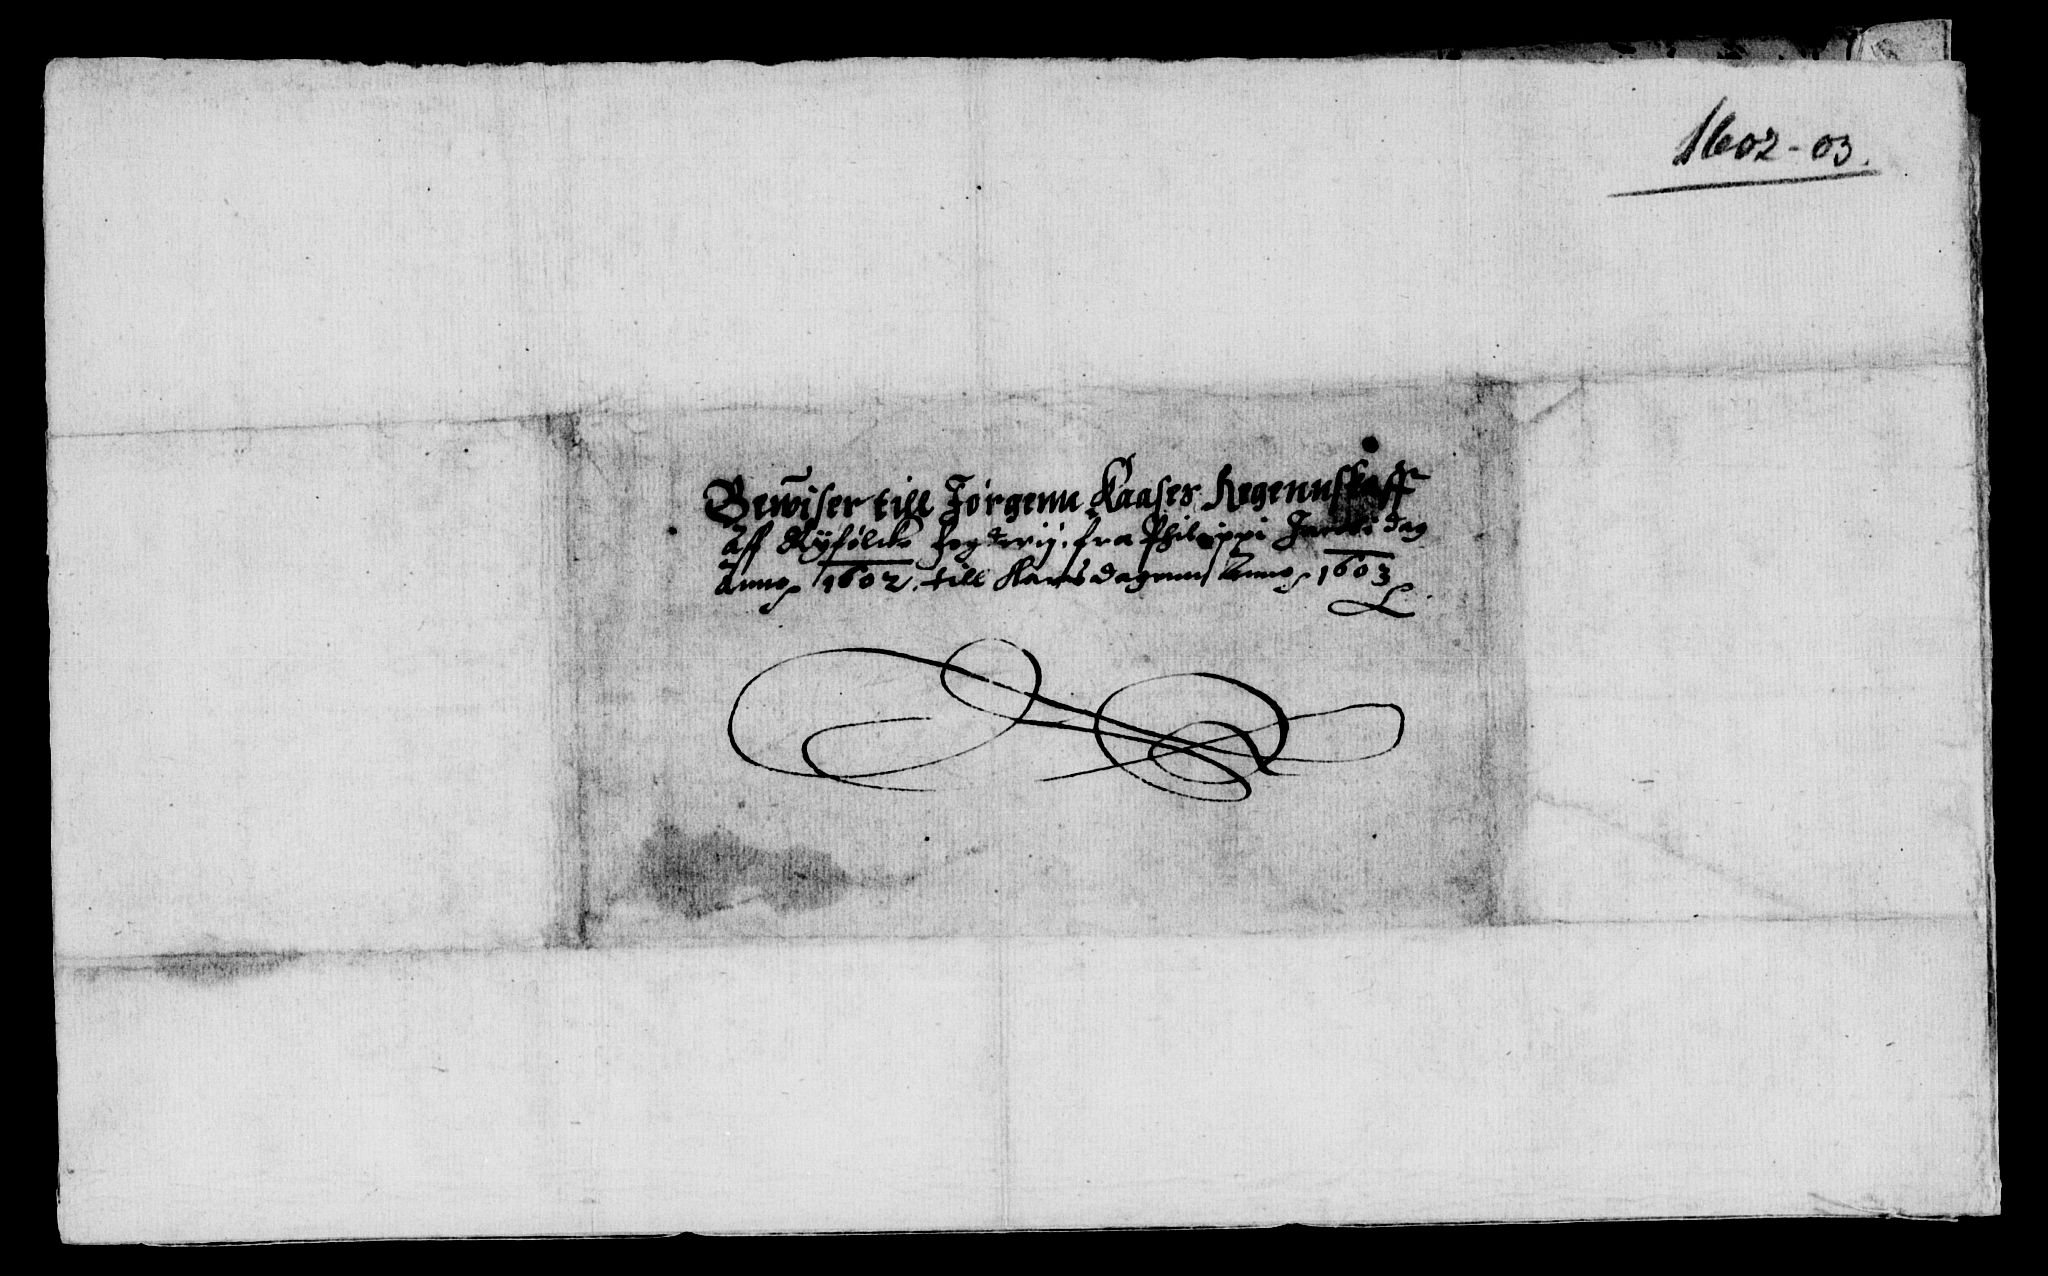 1602-03.
Bewiser till Jørgenn Kaases Regennskaff
Aff Ryfølcke fogderij. fra Philippi Jacobi dag
Anno 1602. till dagenn Anno 1603